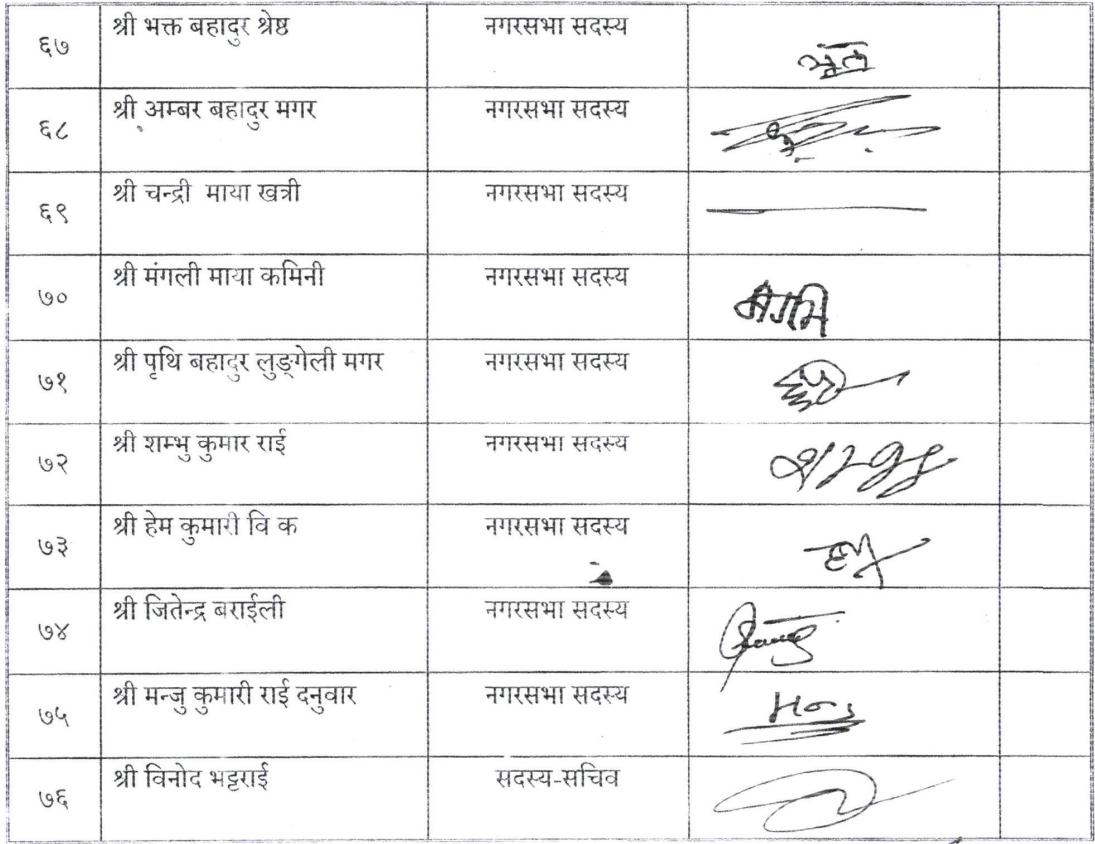 ६७ श्री भक्त बहादुर श्रेष्ठ नगरसभा सदस्य
६८ श्री अम्बर बहादुर मगर नगरसभा सदस्य
६९ श्री चन्द्री माया खत्री नगरसभा सदस्य
७० श्री मंगली माया कमिनी नगरसभा सदस्य
७१ श्री पृथि बहादुर लुङ्गेली मगर नगरसभा सदस्य
७२ श्री शम्भु कुमार राई नगरसभा सदस्य
७३ श्री हेम कुमारी वि क नगरसभा सदस्य
७४ श्री जितेन्द्र बराईली नगरसभा सदस्य
७५ श्री मन्जु कुमारी राई दनुवार नगरसभा सदस्य
७६ श्री विनोद भट्टराई सदस्य-सचिव